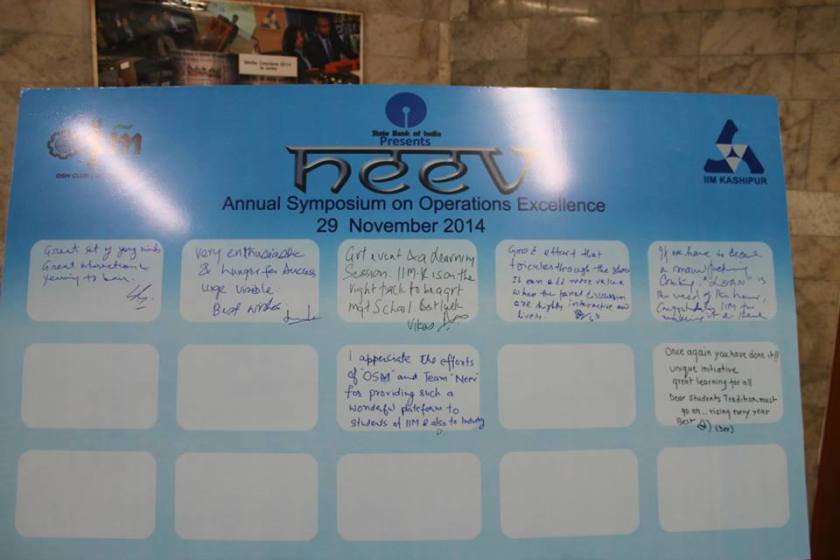 State Bank of India
Presents
neev
Annual Symposium on Operations Excellence
29 November 2014
OSM CLUB
IIM KASHIPUR
Great set of young minds
Great interaction &
yearning to learn.
Very enthusiastic
& hunger for success
urge visible
Best wishes
Grt event & a Learning
Session. IIM.K is on the
right track to be a grt
mgt School Best luck
Vikas
Good effort that
the show
It can add more value
when the panel discussion
are highly interactive and
lively
If we have to become
a manufacturing
Country "LEAN" is
the need of the hour,
Congratulations IIM for
making it a
I appericiate the efforts
of "OSM" and Team "Neev"
for providing such a
wonderful plateform to
students of IIM K also to Industry
Once again you have done it!!
unique initiative
great learning for all
Dear Students Tradition must
go on... rising every year
Best